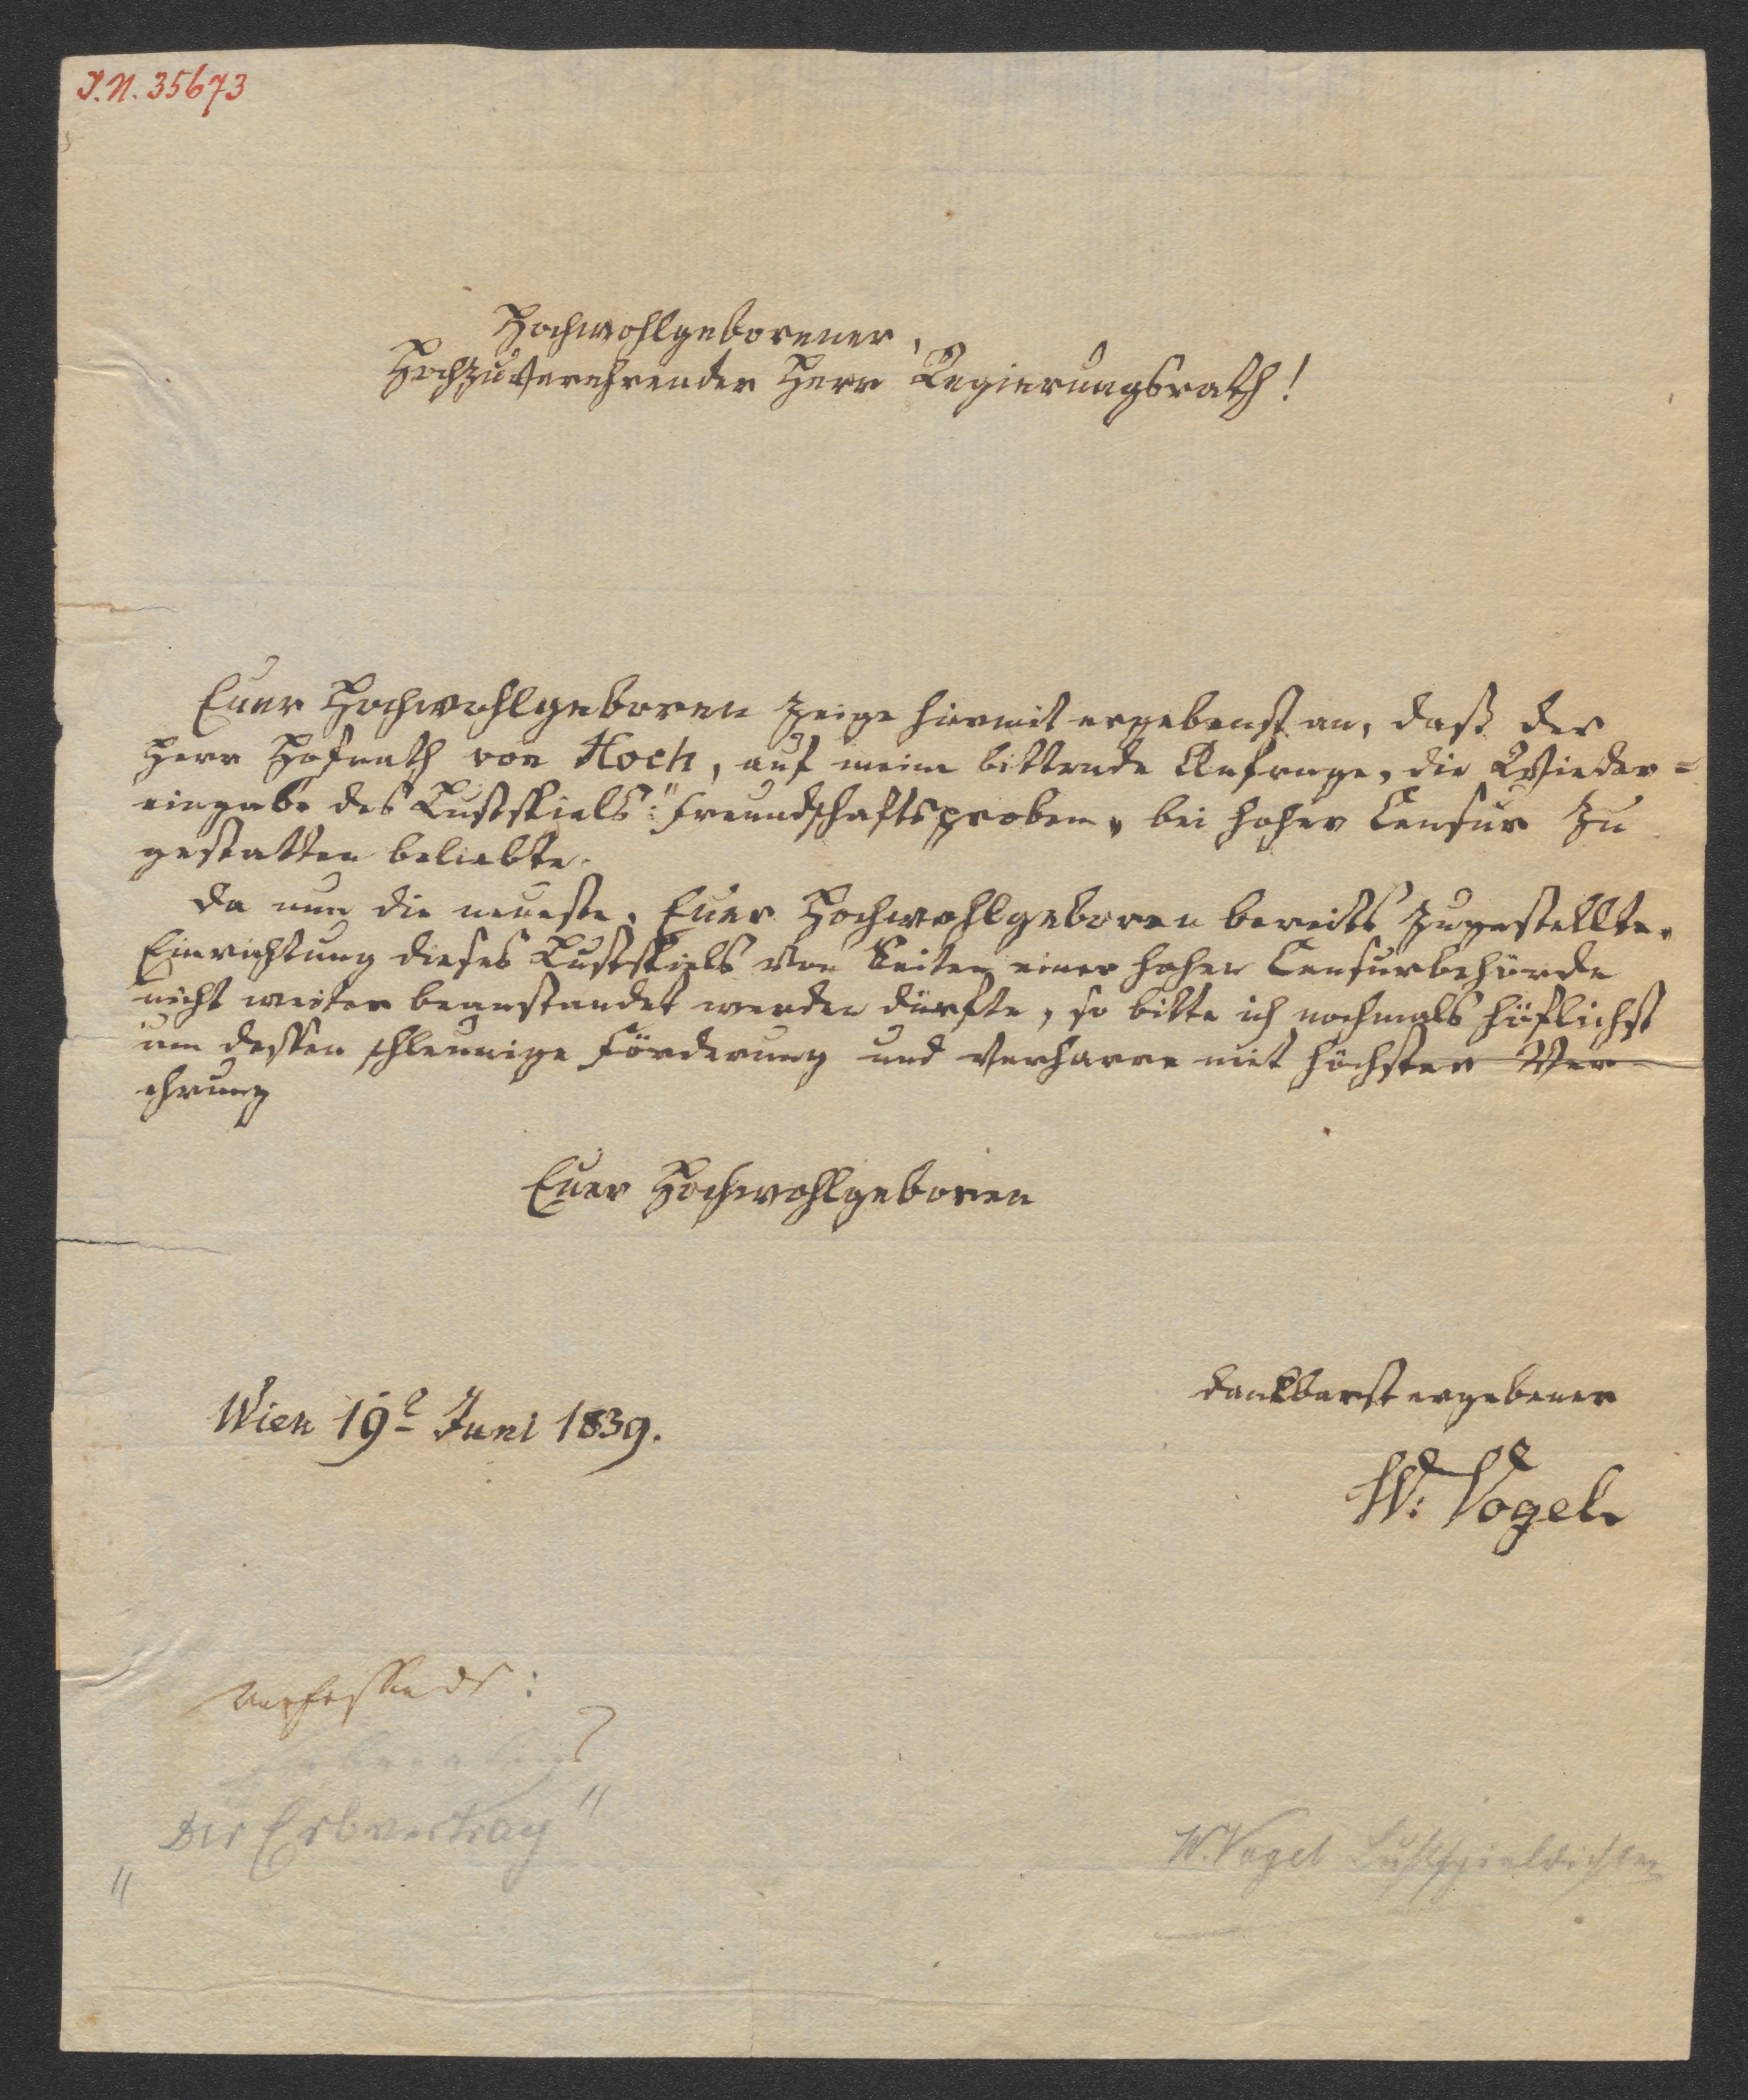 I.N. 35673
Hochwohlgeborener,
Hochzuverehrender Herr Regierungsrath!
Euer Hochwohlgeboren zeige hiermit ergebenst an, daß der
Herr Hofrath von Hoch, auf meine bittende Anfrage, die Wieder=
eingabe des Lustspiels: "Freundschaftsproben" bei hoher Censur zu
gestatten beliebte.
Da nun die neueste, Euer Hochwohlgeboren bereits zugestellte,
Einrichtung dieses Lustspiels von Seiten einer hohen Censurbehörde
nicht weiter beanstandet werden dürfte, so bitte ich nochmals höflichst
um dessen schleunige Förderung und verharre mit höchster Ver-
ehrung
Euer Hochwohlgeboren
dankbarst ergebener
Wien 19t Juni 1839.
W. Vogel
Verfasser des:
"Der Erbvertrag"
W. Vogel Lustspieldichter